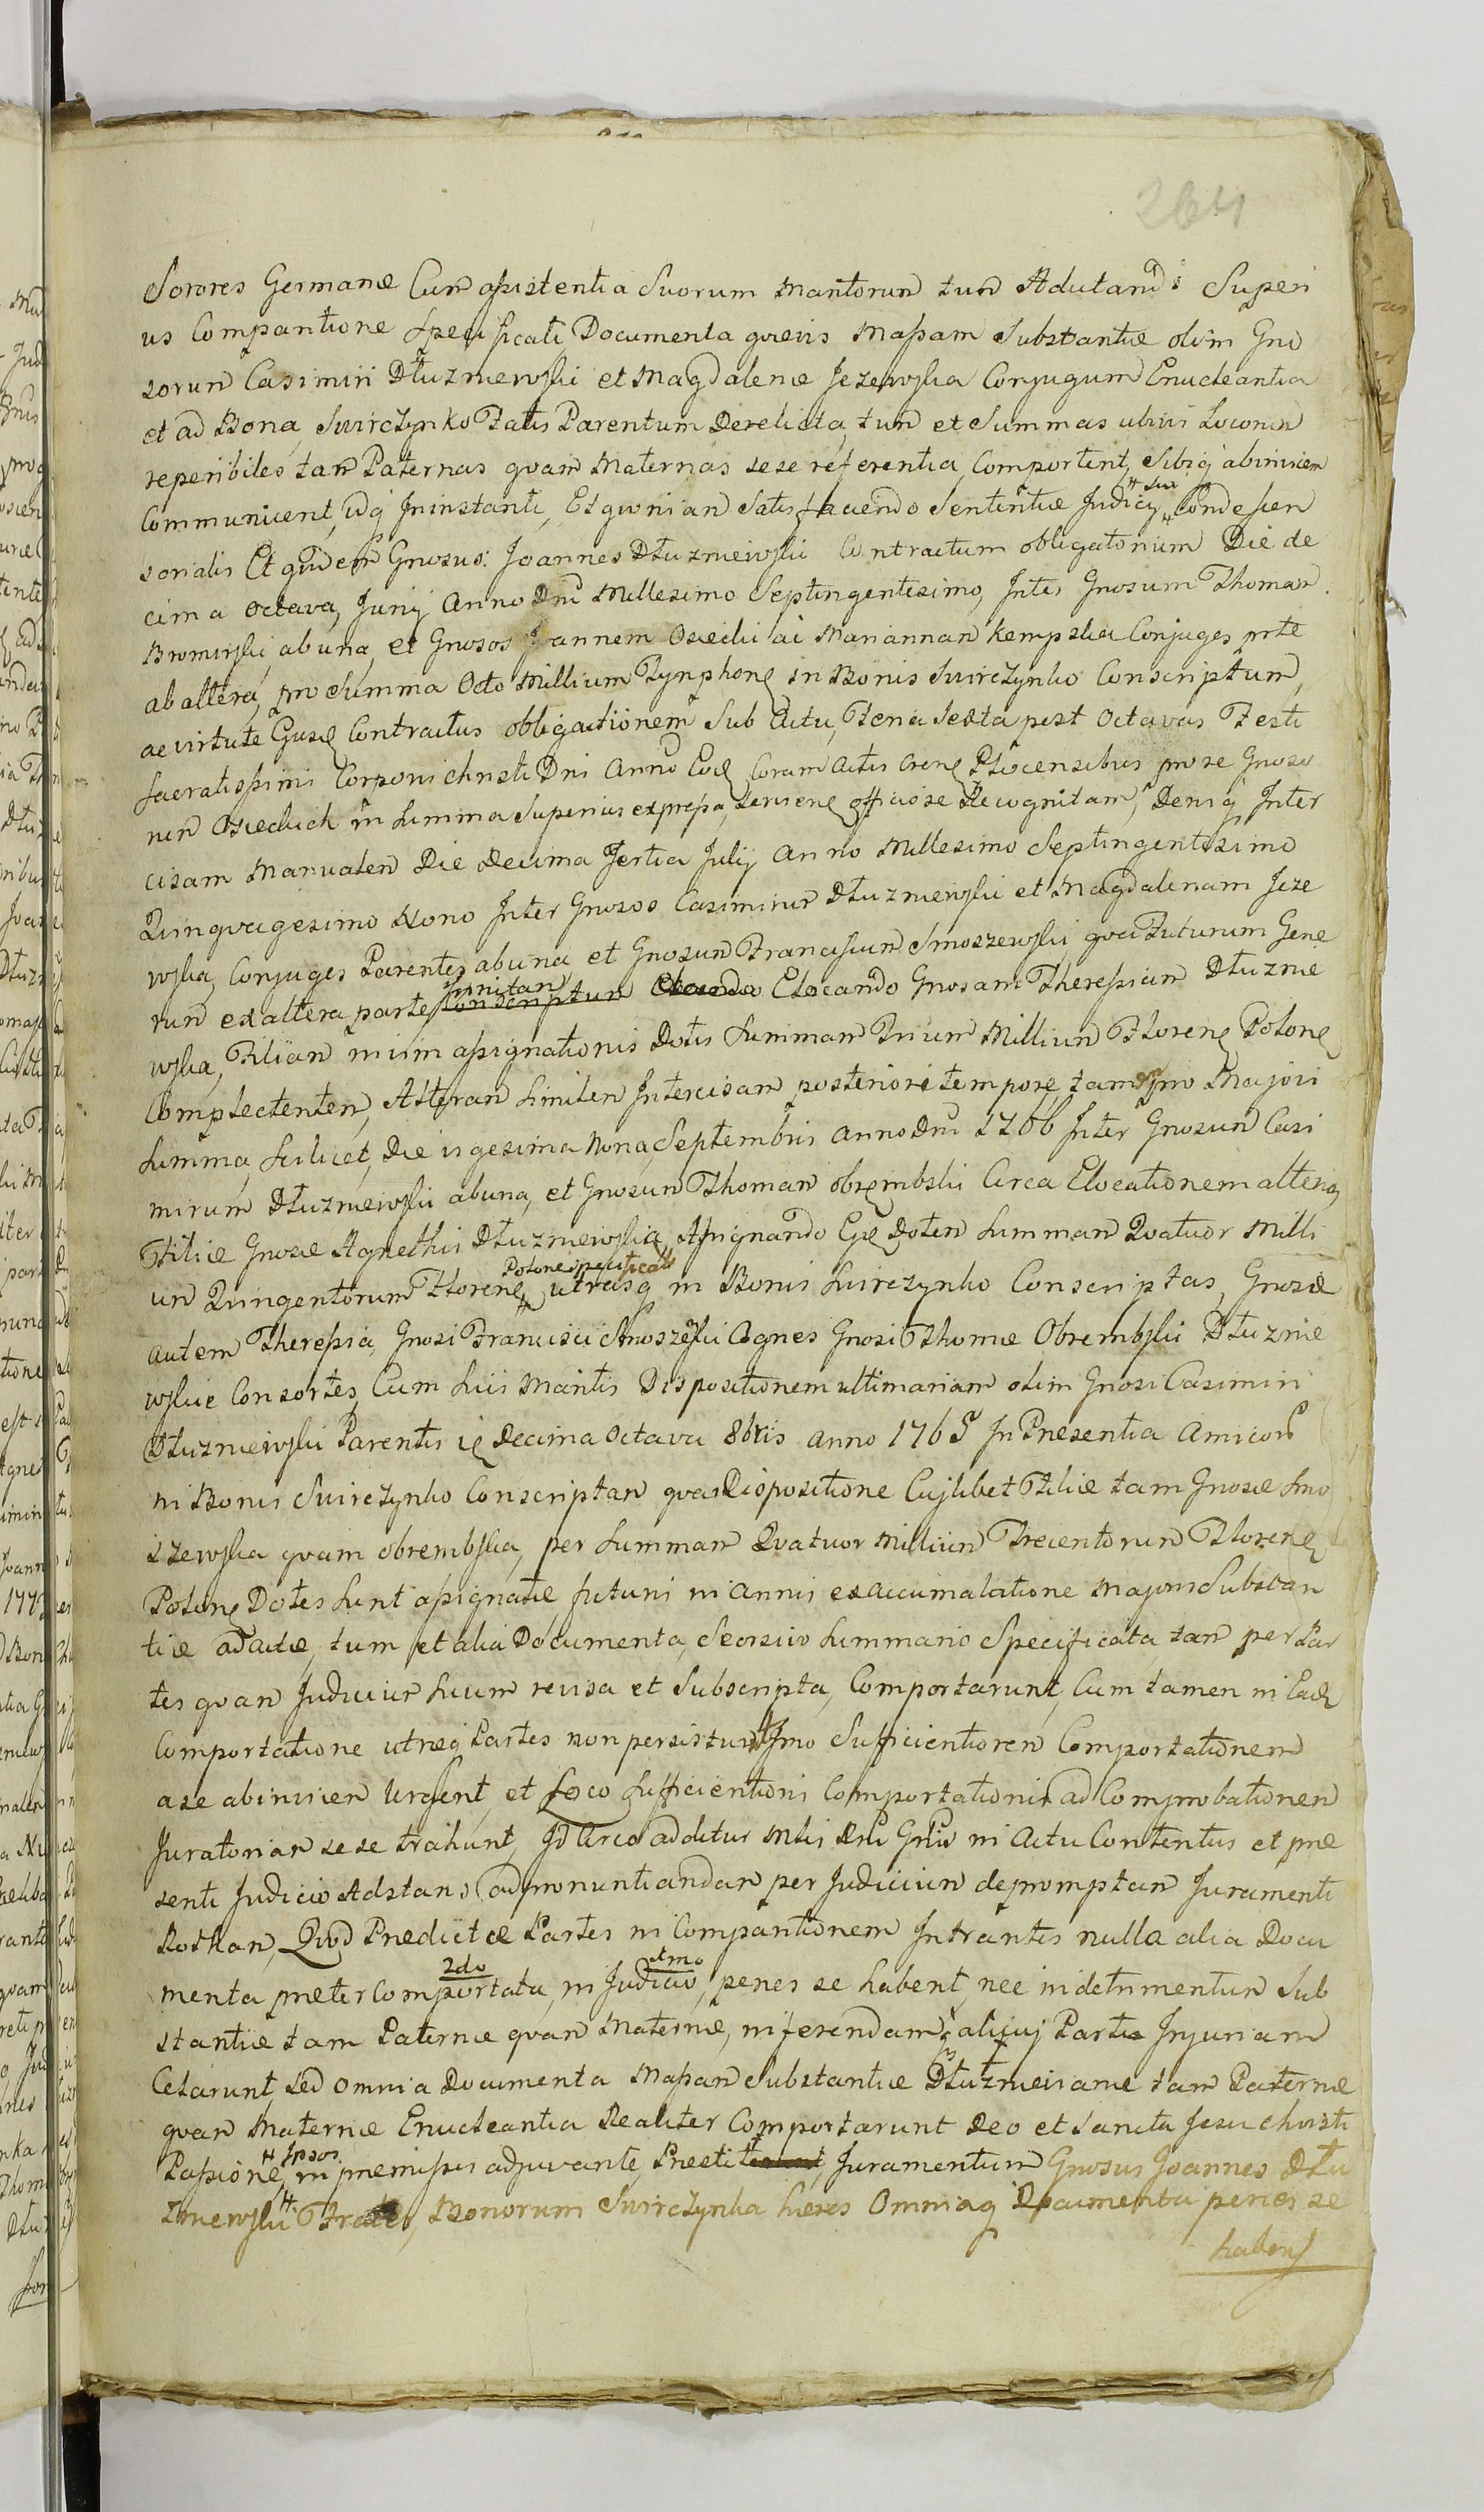 264
Sorores Germanæ Cum assistentia Suorum Maritorum tum Adutand: Superi
us Comparitione Specificati Documenta quævis Massam Substantiæ olim Gno
sorum Casimiri Dłuzniewski et Magdalenæ Jezewska Conjugum Enucleantia
et ad Bona Swirczynko Fatis Parentum Derelicta, tum et Summas ubivis Locorum
reperibiles tam Paternas quam Maternas sese referentia, Comportent, Sibiq abinvicem
Communicent, idq Ininstanti, Et quoniam Satisfaciendo Sententiæ Judicÿ # Sui # Condescen
sorialis Et quidem Gnosus: Joannes Dłuzniewski Contractum obligatorium Die de
cima Octava, Junÿ Anno Dni Millesimo Septingentesimo, Inter Gnosum Thomam
Bromirski, abuna, et Gnosos Joannem Osiecki ac Mariannam Kempska Conjuges prte
ab altera, pro Summa Octo Millium Tynphone in Bonis Swirczynko Conscriptum,
ac virtute Ejusd Contractus obligationem Sub Actu, Feria Sexta post Octavas Festi
Sacratissimi Corporis Christi Dni Anno Eod Coram Actis Crene Plocensibus prose Gnoso
rum Osieckich in Summa Superius expressa, Serviene officiose Recognitam, Deniq Inter
cisam Manualem Die Decima Tertia Julÿ Anno Millesimo Septingentesimo
Quinquagesimo Nono Inter Gnosos Casimirum Dłuzniewski et Magdalenam Jeze
wska, Conjuges Parentes abuna et Gnosum Franciscum Smoszewski qua Futurum Gene
rum exaltera parte Initam Conscriptum Elocando Elocando Gnosam Theressiam Dłuznie
wska, Filiam in vim assignationis Dotis Summam Trium Millium Florene Polone
Complectentem, Alteram Similem Intercisam posteriori tempore, tam pro Majori
Summa, Scilicet, Die vigesima Nona, Septembris Anno Dni 1766 Inter Gnosum Casi
mirum Dłuzniewski abuna, et Gnosum Thomam obrembski Circa Elocationem alterius
Filiæ Gnosæ Agnethis Dłuzniewska, Assignando Ejæ Dotem Summam Quatuor Milli
um Quingentorum Florene # Polone specificats utrasq in Bonis Swirczynko Conscriptas, Gnosæ
autem Theressia, Gnosi Francisci Smoszewski Agnes Gnosi Thomæ Obrembski Dłuznie
wskie Consortes, Cum Suis Maritis Dispositionem ultimariam olim Gnosi Casimiri
Dłuzniewski Parentis ie Decima Octava 8bris Anno 1765 In Presentia Amicorū
in Bonis Swirczynko Conscriptam qua Dispositione Cujlibet Filiæ tam Gnosæ Smo
szewska quam obrembska, per Summam Quatuor Millium Trecentorum Florene
Polone Dotes Sunt assignatæ, futuri in Annis exaccumulatione Majoris Substan
tiæ adactæ, tum et alia Documenta, Seorsivo Summario Specificata, tam per Par
tes quam Judicium Suum revisa et Subscripta, Comportarunt, Cum tamen in Ead
Comportatione utræq Partes non persistunt Imo Sufficientiorem Comportationem
ase abinvicem Urgent, et Loco Sufficientioris Comportationis ad Comprobationem
Juratoriam sese trahunt, Id Circo additur Mtis Dni Gnlis in Actu Contentus et præ
senti Judicio Adstans, ad pronuntiandam per Judicium depromptam Juramenti
Rotham, Quod Prædictæ Partes in Comparitionem Intrantes nulla alia Docu
menta præter Comportata 2do in Judicio 1mo, penes se habent, nec in detrimentum Sub
stantiæ tam Paternæ quam Maternæ, in ferendam alicuj Parti Injuriam
Celarunt, sed omnia Documenta Massam Substantiæ Dłuzniewianæ tam Paternæ
quam Maternæ Enucleantia Realiter Comportarunt Deo et Sancta Jesu Christi
Passione, # Ipsos in præmissis adjuvante, Præsti Juramentum Gnosus Joannes Dłu
zniewski # Frater, Bonorum Swirczynka hæres Omniaq Documenta penes se
habens